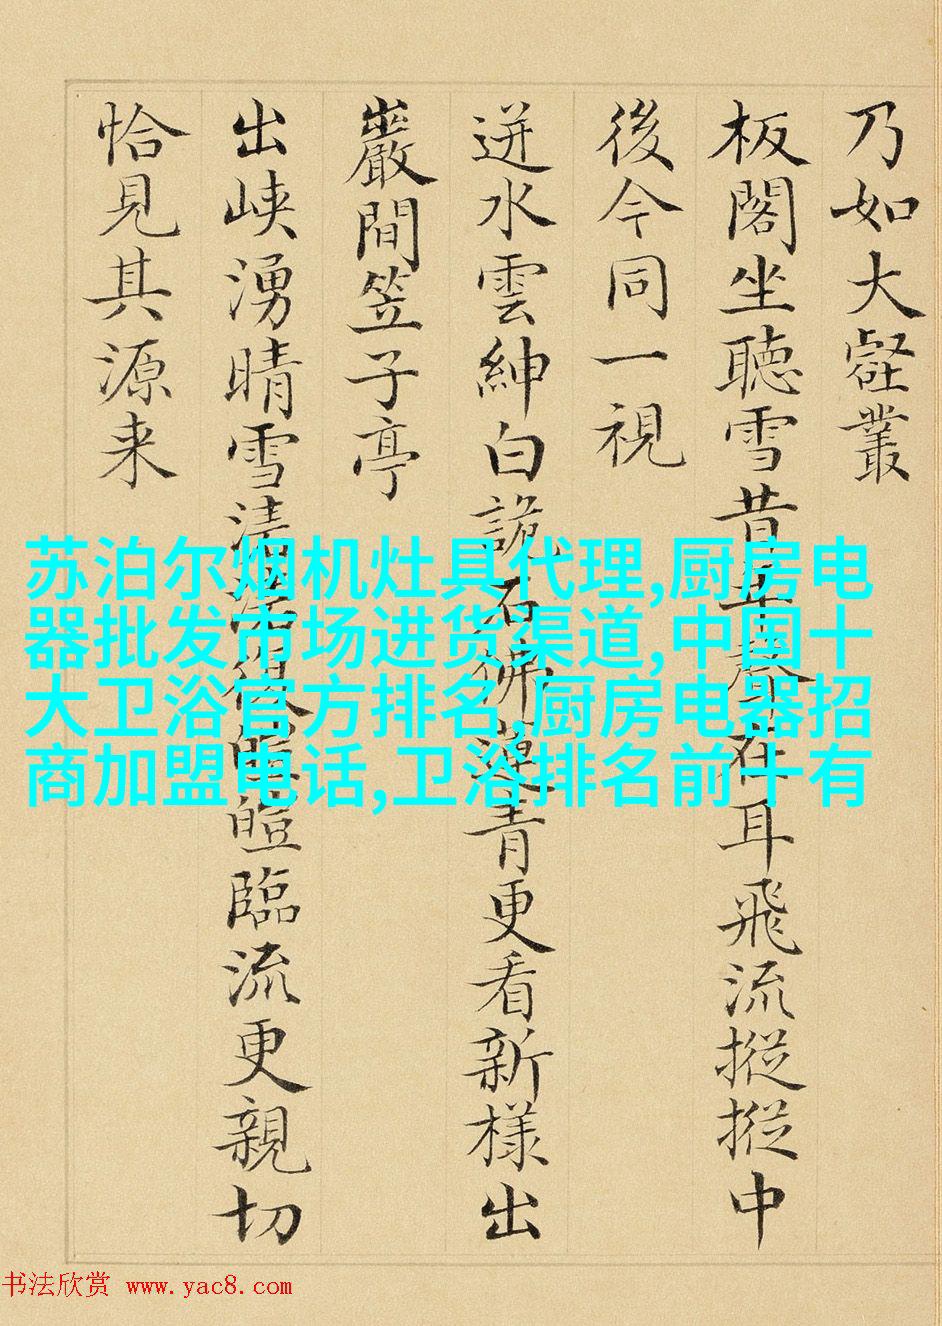 乃如大壑叢
板閣坐聽雪昔年聲在耳飛流摐摐中
後今同一視
迸水雲紳白詭石佛蓮青更看新樣出
巖間笠子亭
出峽湧晴雪清皚臨流更親切
恰見其源来
苏泊尔烟机灶具代理,厨房电
器批发市场进货渠道,中国十
大卫浴官方排名,厨房电器招
商加盟电话,卫浴排名前十有
书法欣赏 www.yac8.com